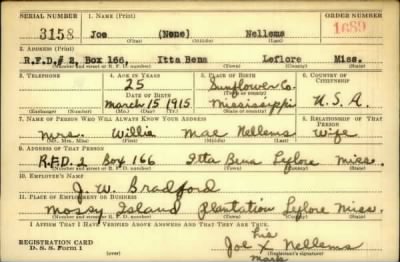 SERIAL NUMBER 1. NAME (Print) ORDER NUMBER
3158 Joe (None) Nellems 1689
(First) (Middle) (Last)
2. ADDRESS (Print)
R.F.D.# 2, Box 166, Itta Bena Leflore Miss.
(Number and street or R. F. D. number) (Town) (County) (State)
3. TELEPHONE 4. AGE IN YEARS 5. PLACE OF BIRTH 6. COUNTRY OF CITIZENSHIP
25 Sunflower Co.
DATE OF BIRTH (Town or county)
March 15 1915 Mississippi U.S.A.
(Exchange) (Number) (Mo.) (Day) (Yr.) (State or country)
7. NAME OF PERSON WHO WILL ALWAYS KNOW YOUR ADDRESS 8. RELATIONSHIP OF THAT PERSON
Mrs. Willie Mae Nellems Wife
(Mr., Mrs., Miss) (First) (Middle) (Last)
9. ADDRESS OF THAT PERSON
R.F.D. 2 Box 166 Itta Bena Leflore Miss.
(Number and street or R. F. D. number) (Town) (County) (State)
10. EMPLOYER'S NAME
J. W. Bradford
11. PLACE OF EMPLOYMENT OR BUSINESS
Mossy Island Plantation Leflore Miss.
(Number and street or R. F. D. number) (Town) (County) (State)
I AFFIRM THAT I HAVE VERIFIED ABOVE ANSWERS AND THAT THEY ARE TRUE.
his
REGISTRATION CARD Joe X Nellems
D. S. S. Form 1 (Registrant's signature)
mark